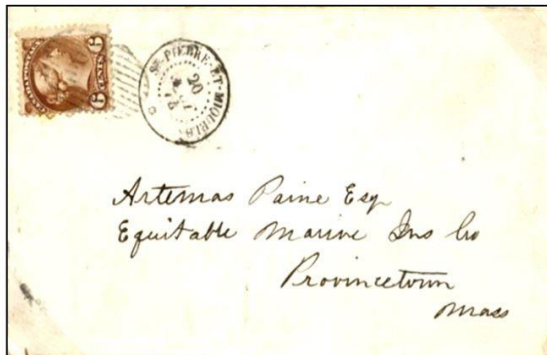 6 CENTS 6
ST-PIERRE-ET-MIQUELON
20
Artemas Paine Esq
Equitable Marine Ins Co
Provincetown
Mass